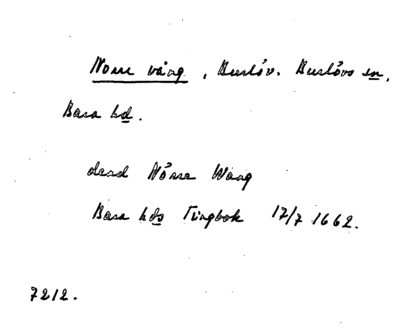 Norre vång, Burlöv. Burlövs sn,
Bara hd.
deed Nörre Wang
Bara hds Tingbok 17/7 1662.
7212.